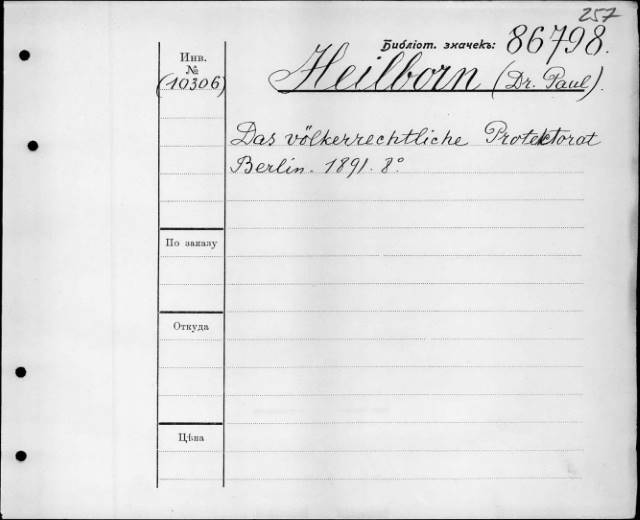 257
Библіот. значекъ: 86798.
Инв.
№
(10306)
Heilborn (Dr. Paul).
Das völkerrechtliche Protektorat
Berlin. 1891. 8°
По заказу
Откуда
Цѣна